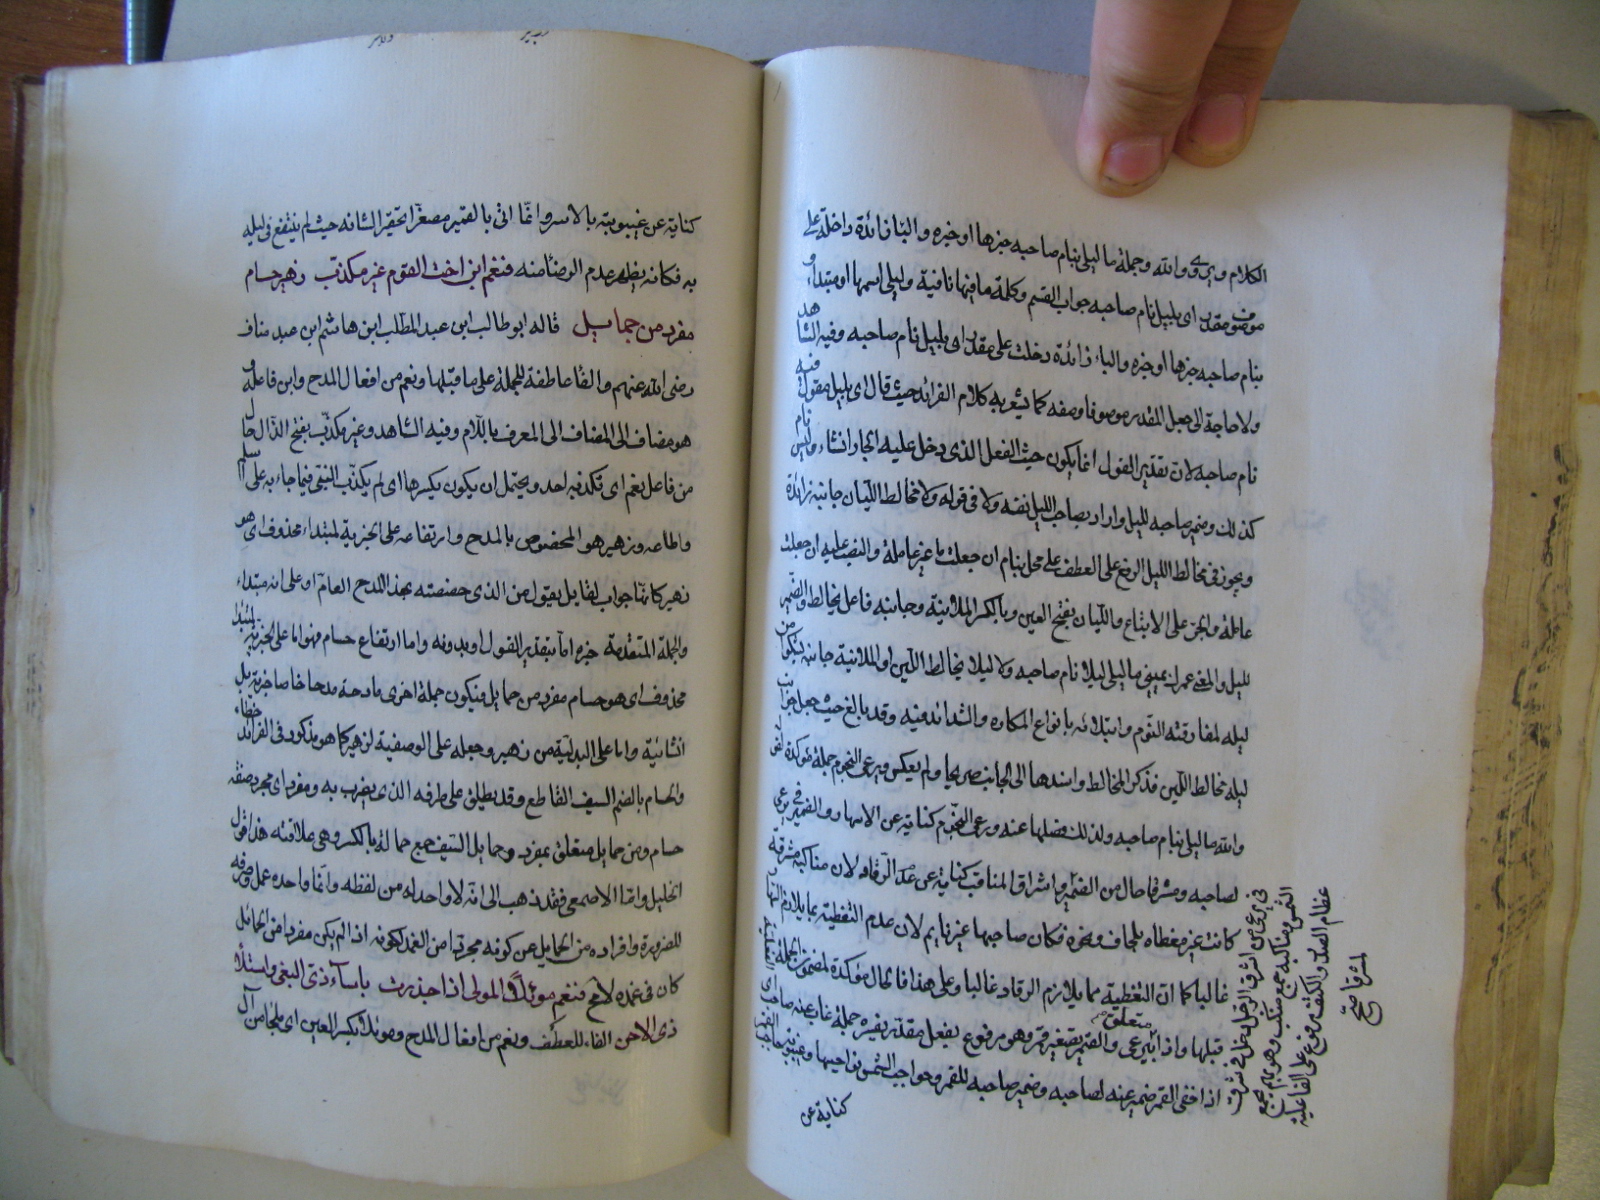 الكلام ويرى ووالله وجملة ما ليلى بنام صاحبه جزها او خبره والبا زائدة داخلة على
موصوف مقدر اى بليل نام صاحبه جواب القسم وكلمة ما فيها نافية وليلى اسمها او مبتداء و
بنام صاحبه جزها او خبره والباء زائدة دخلت على مقدر اى بليل نام صاحبه وفيه الشاهد
ولا حاجة الى جعل المقدر موصوفا وصفه كما يشعر به كلام الفرائد حيث قال اى بليل مقول فيه
نام صاحبه لان تقدير القول انما يكون حيث الفعل الذى دخل عليه الجار انشاء وليس نام
كذلك وضمير صاحبه لليل واراد بصاحب الليل نفسه ولا فى قوله ولا مخالط الليان جانبه زائدة
ويجوز فى مخالط الليل الرفع على العطف على محل بنام ان جعلت ما غير عاملة والنصب عليه ان جعلت
عاملة والجر على الاتباع والليان بفتح العين وبالكسر الملاينة وجانبه فاعل مخالط والضمير
لليل والمعنى عمرك يمينى ما ليلى ليلا نام صاحبه ولا ليلا مخالط اللين او الملاينة جانبه ليشكوا من
ليله لمفارقته النوم وابتلائه بانواع المكاره والشدائد فيه وقد بالغ حيث جعل جانب
ليله مخالط اللين فذكر المخالط واسندها الى الجانب صريحا ولم يعكس ويرعى النجوم جملة مؤكدة لقوله
والله ما ليلى بنام صاحبه ولذلك فصلها عنه ورعى النجوم كناية عن الاسهار والضمير فى يرعى
لصاحبه ومشرفا حال من الضمير واشراق المناقب كناية عن عدم الرقاد لان مناكبه مشرقة
كانت غير مغطاه بلحاف ونحوه فكان صاحبها غير نايم لان عدم التغطية مما يلازم
غالبا كما ان التغطية مما يلازم الرقاد غالبا وعلى هذا فالحال مؤكدة لمضمون الجملة
قبلها واذا متعلق بيرعى والقمير تصغير قمر وهو مرفوع بفعل مقدر يفسره جملة غاب عنه صاحب
اذا خفى القمر ضمير عنه لصاحبه وضمير صاحبه للقمر وحواجب الشمس نواحيها وغيبوبة
كناية عن
فى يرعى من اشرق الرجل دخل فى شرق
الشمس ومناكبه جمع منكب وهو يجمع
عظام الصدر والكتف مرفوع على الفاعلية
لمشرفا صح
كناية عن غيبوبته بالاسر وانما اتى بالقمير مصغرا تحقيرا لشانه حيث لم ينتفع فى ليله
به فكانه يظهر عدم الرضاء منه فنعم ابن اخت القوم غير مكذب زهير حسام
مفرد من حمايل قاله ابو طالب ابن عبد المطلب ابن هاشم ابن عبد مناف
رضى الله عنهم والفاء عاطفة للجملة على ما قبلها ونعم من افعال المدح وابن فاعله و
هو مضاف الى المضاف الى المعرف باللام وفيه الشاهد وغير مكذب بفتح الذال حال
من فاعل نعم اى تكذبه احد ويحتمل ان يكون بكسرها اى لم يكذب النبى فيما جاء به على
واطاعه وزهير هو المخصوص بالمدح وارتفاعه على الخبرية لمبتداء محذوف اى هو
زهير كانها جواب لقايل يقول من الذى خصصته بهذا المدح العام او على انه مبتداء
والجملة المتقدمة خبره اما بتقدير القول او بدونه واما ارتفاع حسام فهو اما على الخبرية لمبتداء
محذوف اى هو حسام مفرد من حمايل فيكون جملة اخرى مادحة مدحا خاصا خبرية بل
انشائية واما على البدلية من زهير وجعله على الوصفية لزهير كما هو مذكور فى الفرائد خطاء
والحسام بالضم السيف القاطع وقد يطلق على طرفه الذى يضرب به ومفرد اى مجرد صفة
حسام ومن حمايل متعلق بمفرد وحمايل السيف جمع حمالة بالكسر وهى علاقته هذا قول
الخليل واما الاصمعى فقد ذهب الى انه لا واحد له من لفظه وانما واحده محمل وصرفه
للضرورة وافراده من الحمايل عن كونه مجردا من الغمد لكونه اذا لم يكن مفردا من الحمائل
كان فى غمده لا مح فنعم موئلا المولى اذا حذرت باساء ذى البغى واستيلاء
ذى الاحن الفاء للعطف ونعم من افعال المدح وموئلا بكسر العين اى ملجأ من آل